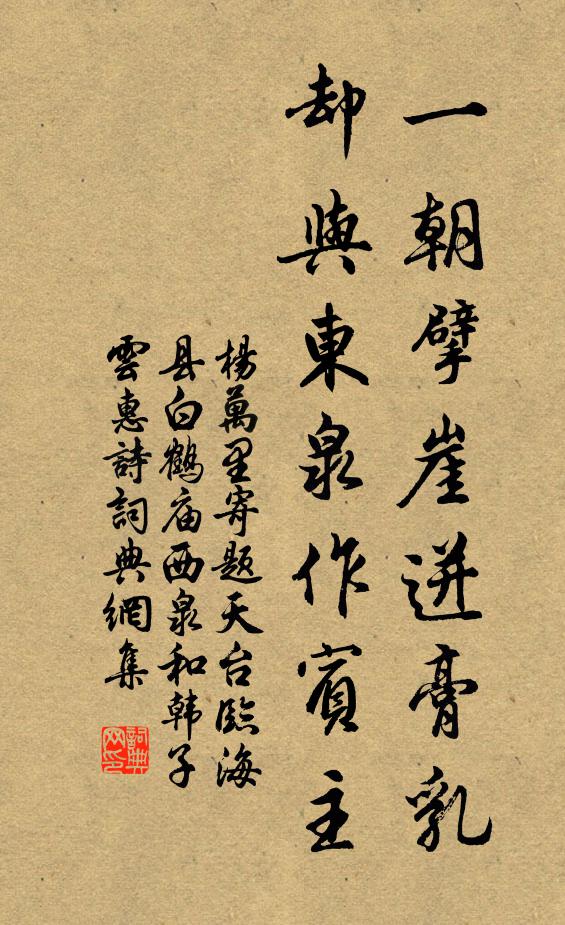 一朝擘崖迸膏乳
却與東泉作賓主
楊萬里寄题天台臨海
县白鶴庙西泉和韩子
雲惠詩詞典網集
詞典
网印